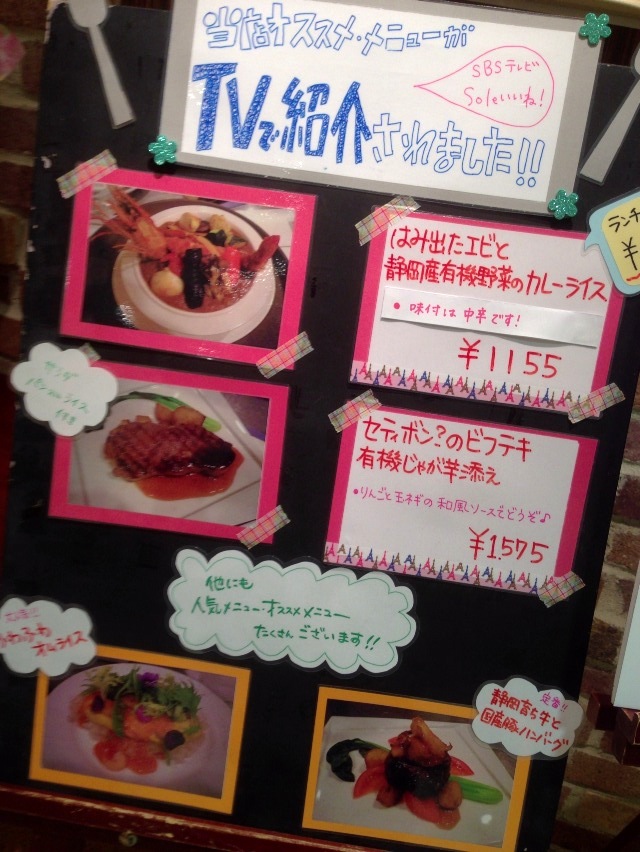 当店オススメ・メニューが
TVで紹介されました!!
SBSテレビ
Soleいいね!
ランチ
¥
はみ出たエビと
静岡産有機野菜のカレーライス
• 味付は中辛です!
¥1155
サラダ
セティボン?のビフテキ
有機じゃが芋添え
•りんごと玉ネギの和風ソースでどうぞ♪
¥1575
他にも
人気メニュー・オススメメニュー
たくさんございます!!
ふわふわ
オムライス
定番!!
静岡育ち牛と
国産豚のハンバーグ